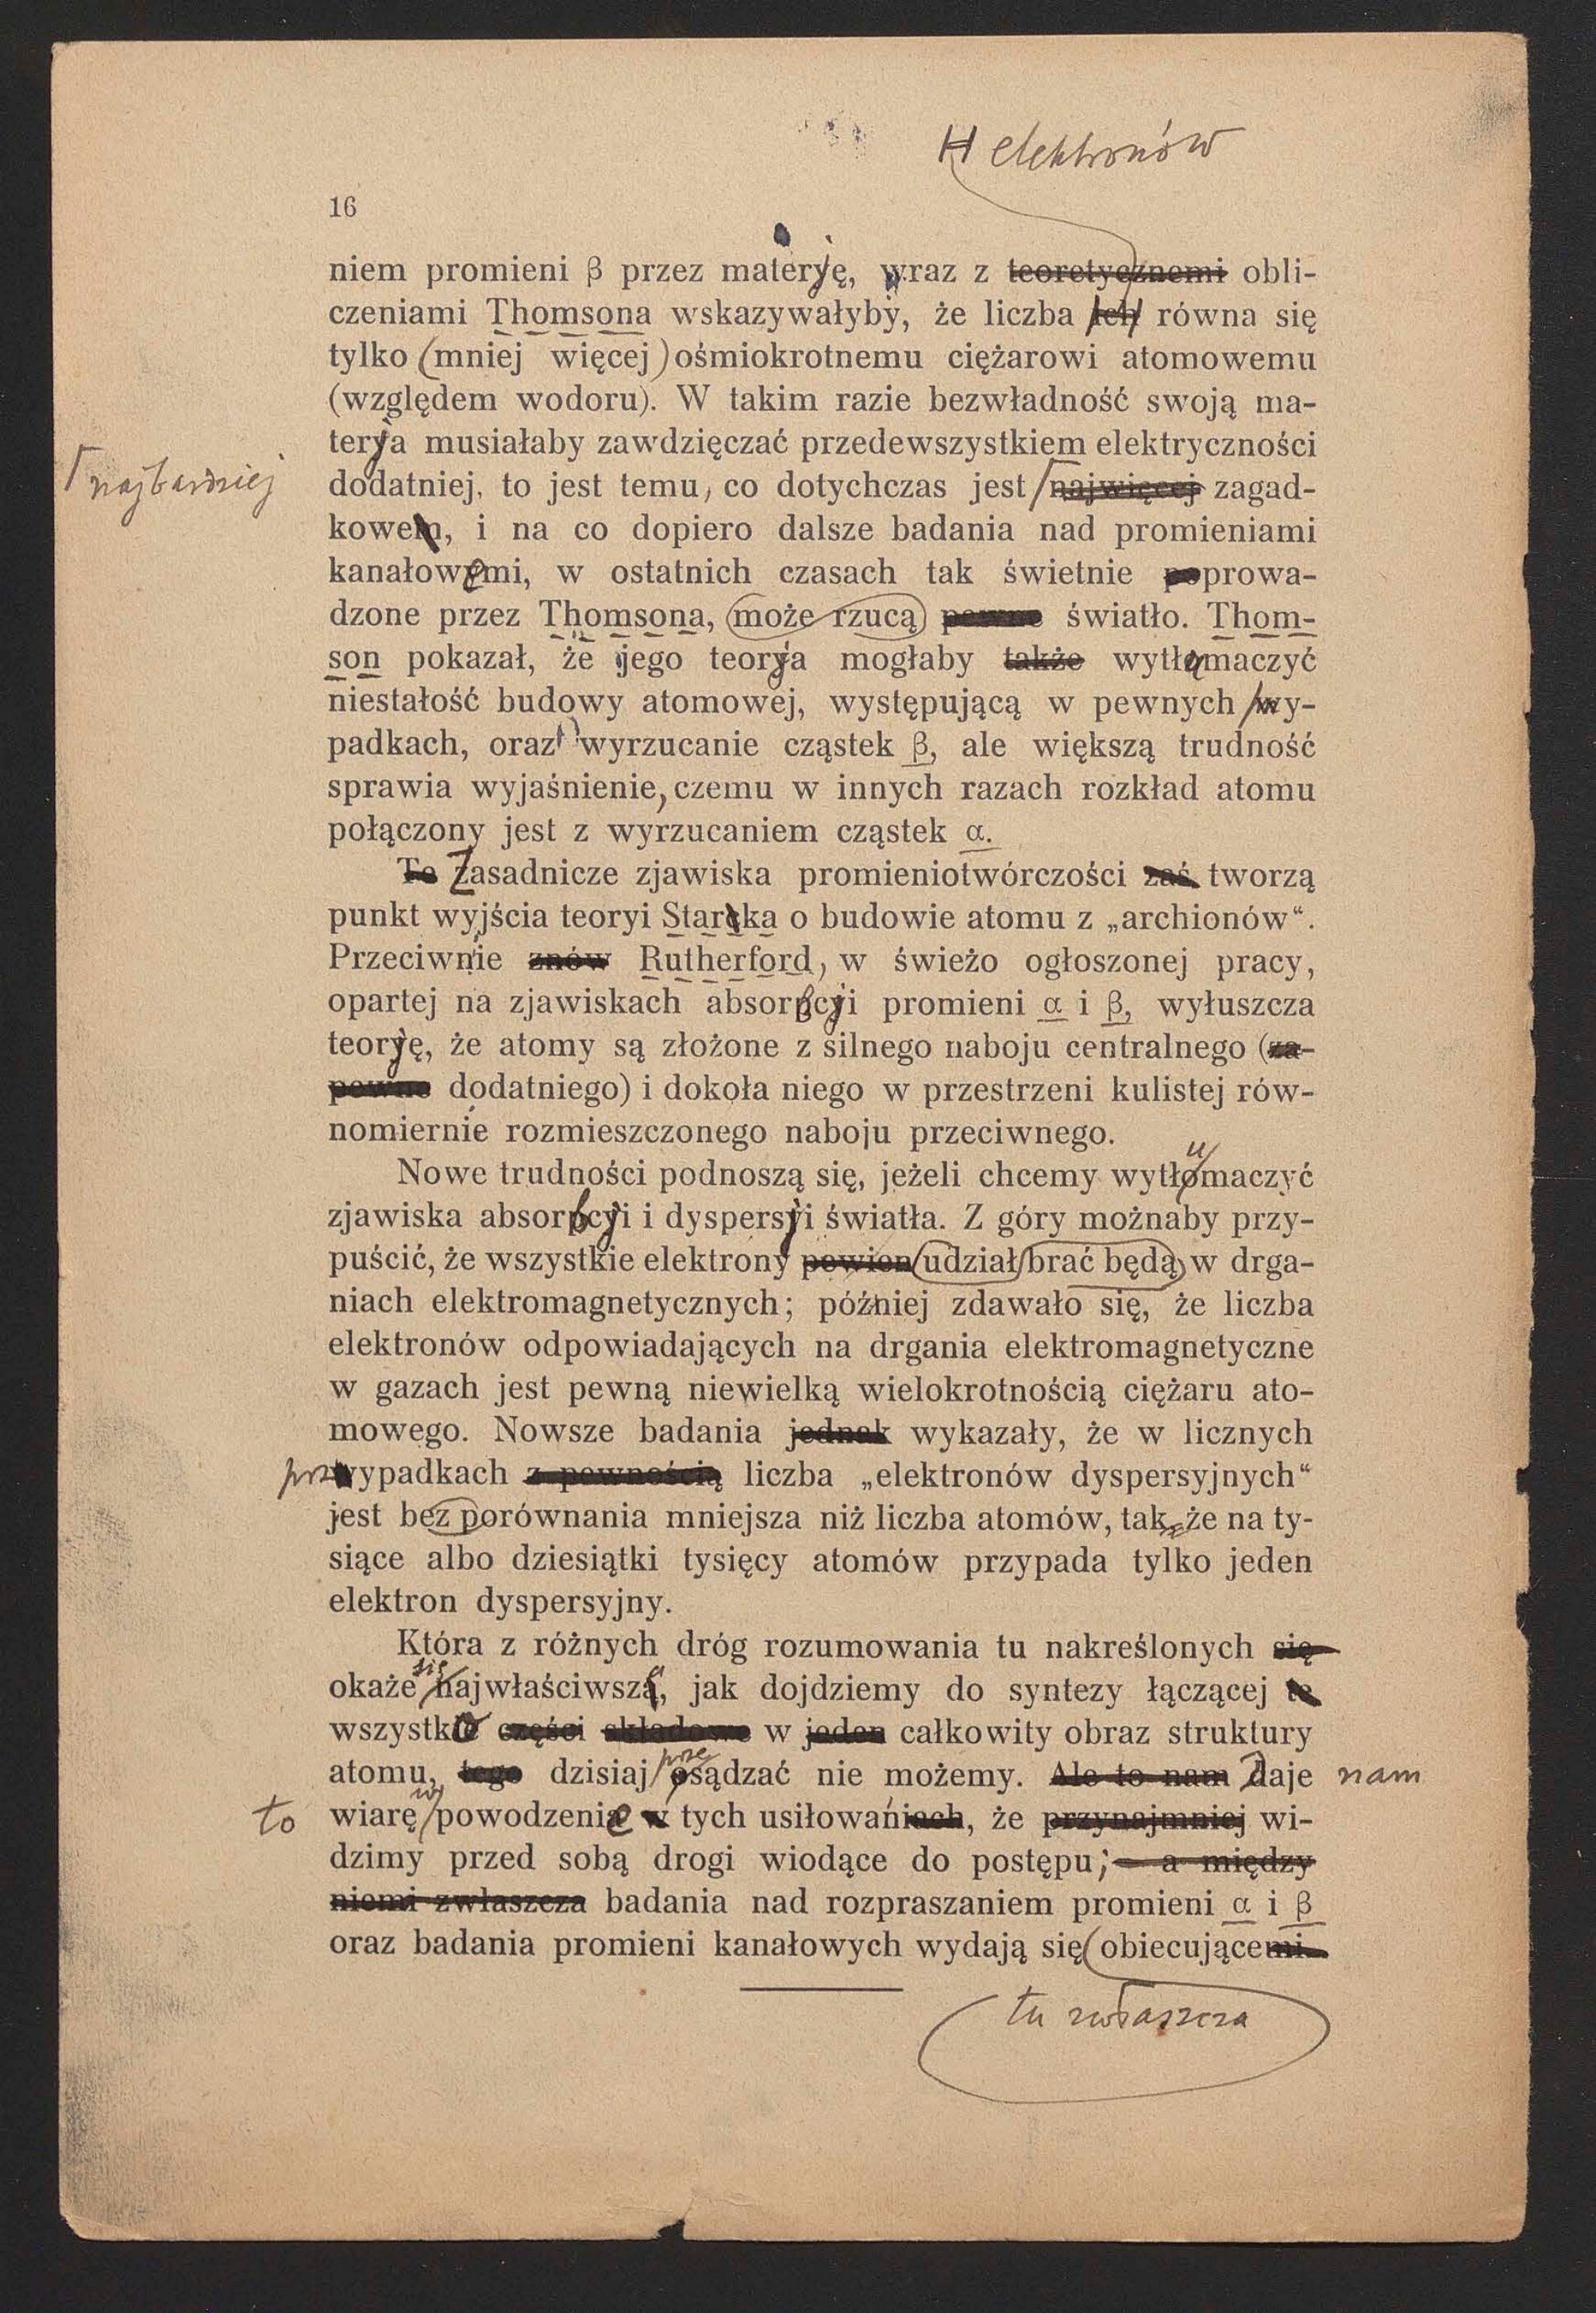 elektronów
16
niem promieni β przez materyę, wraz z teoretycznemi obli-
czeniami Thomsona wskazywałyby, że liczba ich równa się
tylko (mniej więcej) ośmiokrotnemu ciężarowi atomowemu
(względem wodoru). W takim razie bezwładność swoją ma-
terya musiałaby zawdzięczać przedewszystkiem elektryczności
najbardziej
dodatniej, to jest temu, co dotychczas jest najwięcej zagad-
kowem, i na co dopiero dalsze badania nad promieniami
kanałowemi, w ostatnich czasach tak świetnie poprowa-
dzone przez Thomsona, może rzucą pewne światło. Thom-
son pokazał, że jego teorya mogłaby także wytłumaczyć
niestałość budowy atomowej, występującą w pewnych wy-
padkach, oraz wyrzucanie cząstek β, ale większą trudność
sprawia wyjaśnienie, czemu w innych razach rozkład atomu
połączony jest z wyrzucaniem cząstek α.
Te Zasadnicze zjawiska promieniotwórczości zaś tworzą
punkt wyjścia teoryi Starcka o budowie atomu z „archionów“.
Przeciwnie znów Rutherford, w świeżo ogłoszonej pracy,
opartej na zjawiskach absorbcyi promieni α i β, wyłuszcza
teoryę, że atomy są złożone z silnego naboju centralnego (za-
pewne dodatniego) i dokoła niego w przestrzeni kulistej rów-
nomiernie rozmieszczonego naboju przeciwnego.
u
Nowe trudności podnoszą się, jeżeli chcemy wytłomaczyć
zjawiska absorbcyi i dyspersyi światła. Z góry możnaby przy-
puścić, że wszystkie elektrony pewien udział brać będą w drga-
niach elektromagnetycznych; później zdawało się, że liczba
elektronów odpowiadających na drgania elektromagnetyczne
w gazach jest pewną niewielką wielokrotnością ciężaru ato-
mowego. Nowsze badania jednak wykazały, że w licznych
przwypadkach z pewnością liczba „elektronów dyspersyjnych“
jest bez porównania mniejsza niż liczba atomów, tak, że na ty-
siące albo dziesiątki tysięcy atomów przypada tylko jeden
elektron dyspersyjny.
Która z różnych dróg rozumowania tu nakreślonych się
się
okaże najwłaściwszą, jak dojdziemy do syntezy łączącej te
wszystko części składowe w jeden całkowity obraz struktury
prze
atomu, tego dzisiaj osądzać nie możemy. Ale to nam Daje nam
w
to wiarę powodzenie w tych usiłowaniach, że przynajmniej wi-
dzimy przed sobą drogi wiodące do postępu; — a między
niemi zwłaszcza badania nad rozpraszaniem promieni α i β
oraz badania promieni kanałowych wydają się obiecującemi.
tu zwłaszcza